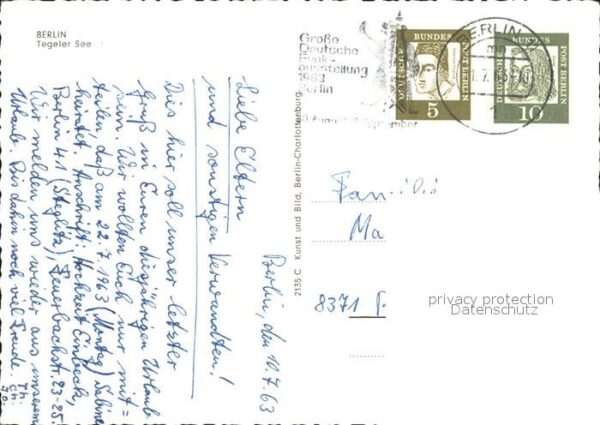 BERLIN
Tegeler See
Große
Deutsche
Funk-
ausstellung
1963
Berlin
BERLIN
DEUTSCHE BUNDESPOST BERLIN
5
DEUTSCHE BUNDESPOST BERLIN
10
Berlin, den 10.7.63
Liebe Eltern
und sonstigen Verwandten!
Dies hier soll unser letzter
Gruß in Euren diesjährigen Urlaub
sein. Wir wollten Euch nur mit=
teilen, daß am 22.7.1963 (Montag) Sabine
heiratet. Anschrift: Hochzeit Einbeck,
Berlin 41 (Steglitz), Feuerbachstr. 23-25.
Wir melden uns wieder aus unserem
Urlaub. Bis dahin noch viel Freude.
2135 C Kunst und Bild, Berlin-Charlottenburg
Familie
Ma
8371
privacy protection
Datenschutz